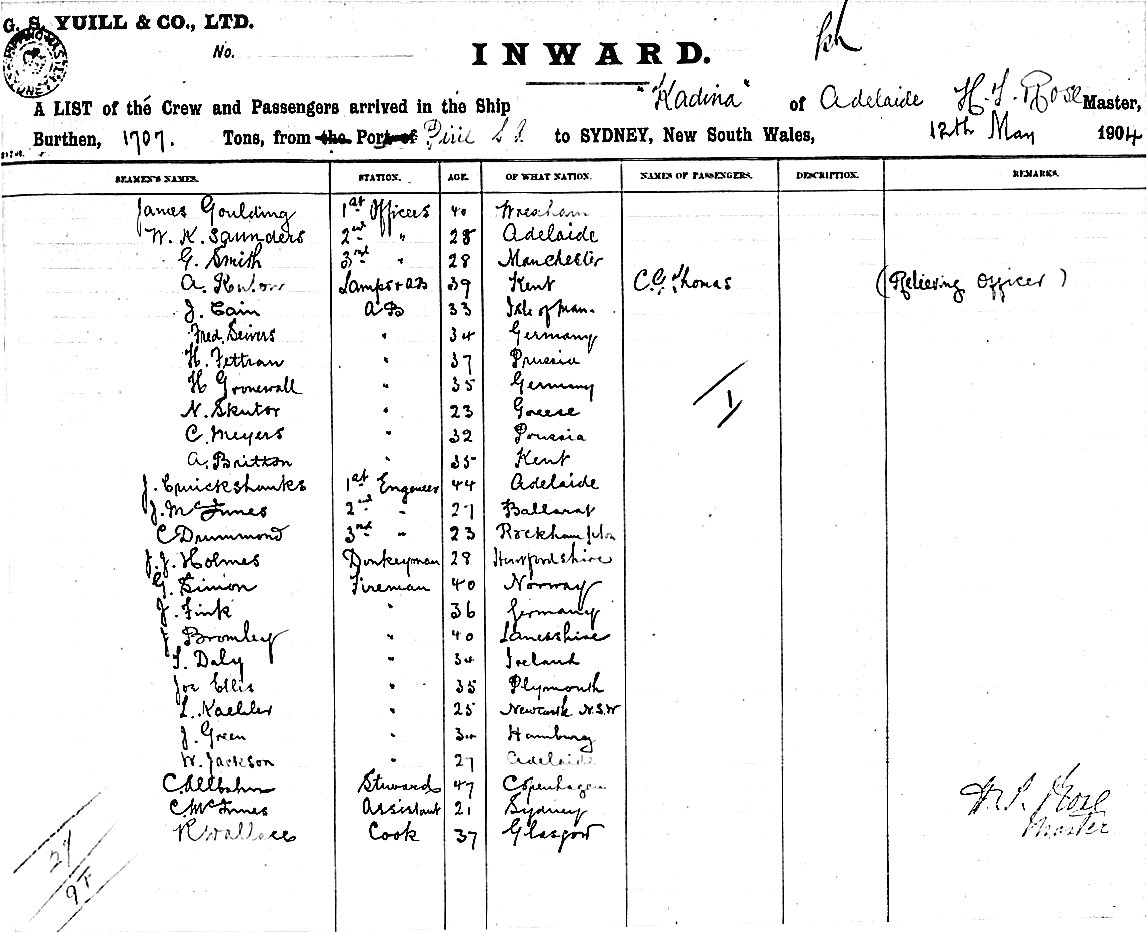 G. S. YUILL & CO., LTD.
No.
INWARD.
A LIST of the Crew and Passengers arrived in the Ship "Kadina" of Adelaide H. S. Rose Master,
Burthen, 1707. Tons, from the Port of Pirie S A. to SYDNEY, New South Wales, 12th May 1904
SEAMEN'S NAMES. STATION. AGE. OF WHAT NATION. NAMES OF PASSENGERS. DESCRIPTION. REMARKS.
James Goulding 1st Officers 40 Wrexham
W. K. Saunders 2nd " 28 Adelaide
G. Smith 3rd " 28 Manchester
A. Lamps & AB 39 Kent C. G. Thomas (Relieving Officer)
J. Cain AB 33 Isle of Man.
Fred. Seivers " 34 Germany
H. Fettran " 37 Prussia
H Gronewall " 35 Germany
N. Skutor " 23 Greese
C. Meyers " 32 Prussia
A. Britton " 35 Kent
J. Cruickshanks 1st Engeneer 44 Adelaide
J. McInnes 2nd " 27 Ballarat
C Drummond 3rd " 23 Rockhampton
J. J. Holmes Donkeyman 28 Hertfordshire
G. Simon Fireman 40 Norway
J. Fink " 36 Germany
J Bromley " 40 Lancashire
T. Daly " 34 Ireland
Joe Ellis " 35 Plymouth
L. Kaehler " 25 Newcastle N.S.W
J. Green " 34 Hamburg
W. Jackson " 27 Adelaide
C Allbohn Steward 47 Copenhagen
C McInnes Assistant 21 Sydney
R Wallace Cook 37 Glasgow
1
H. S. Rose
Master
27